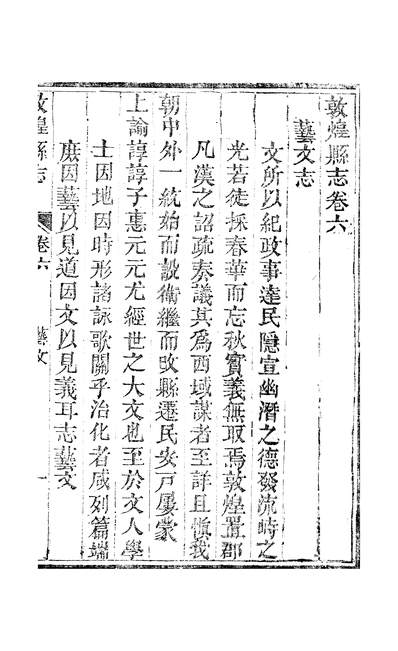 敦煌縣志卷六
藝文志
文所以紀政事達民隱宣幽潛之德發流峙之
光若徒採春華而忘秋實義無取焉敦煌置郡
凡漢之詔疏奏議其為西域謀者至詳且慎我
朝中外一統始而設衛繼而改縣遷民安戶屢蒙
上諭諄諄子惠元元尤經世之大文也至於文人學
士因地因時形諸詠歌關乎治化者咸列篇端
庶因藝以見道因文以見義耳志藝文
敦煌縣志 卷六 藝文 一